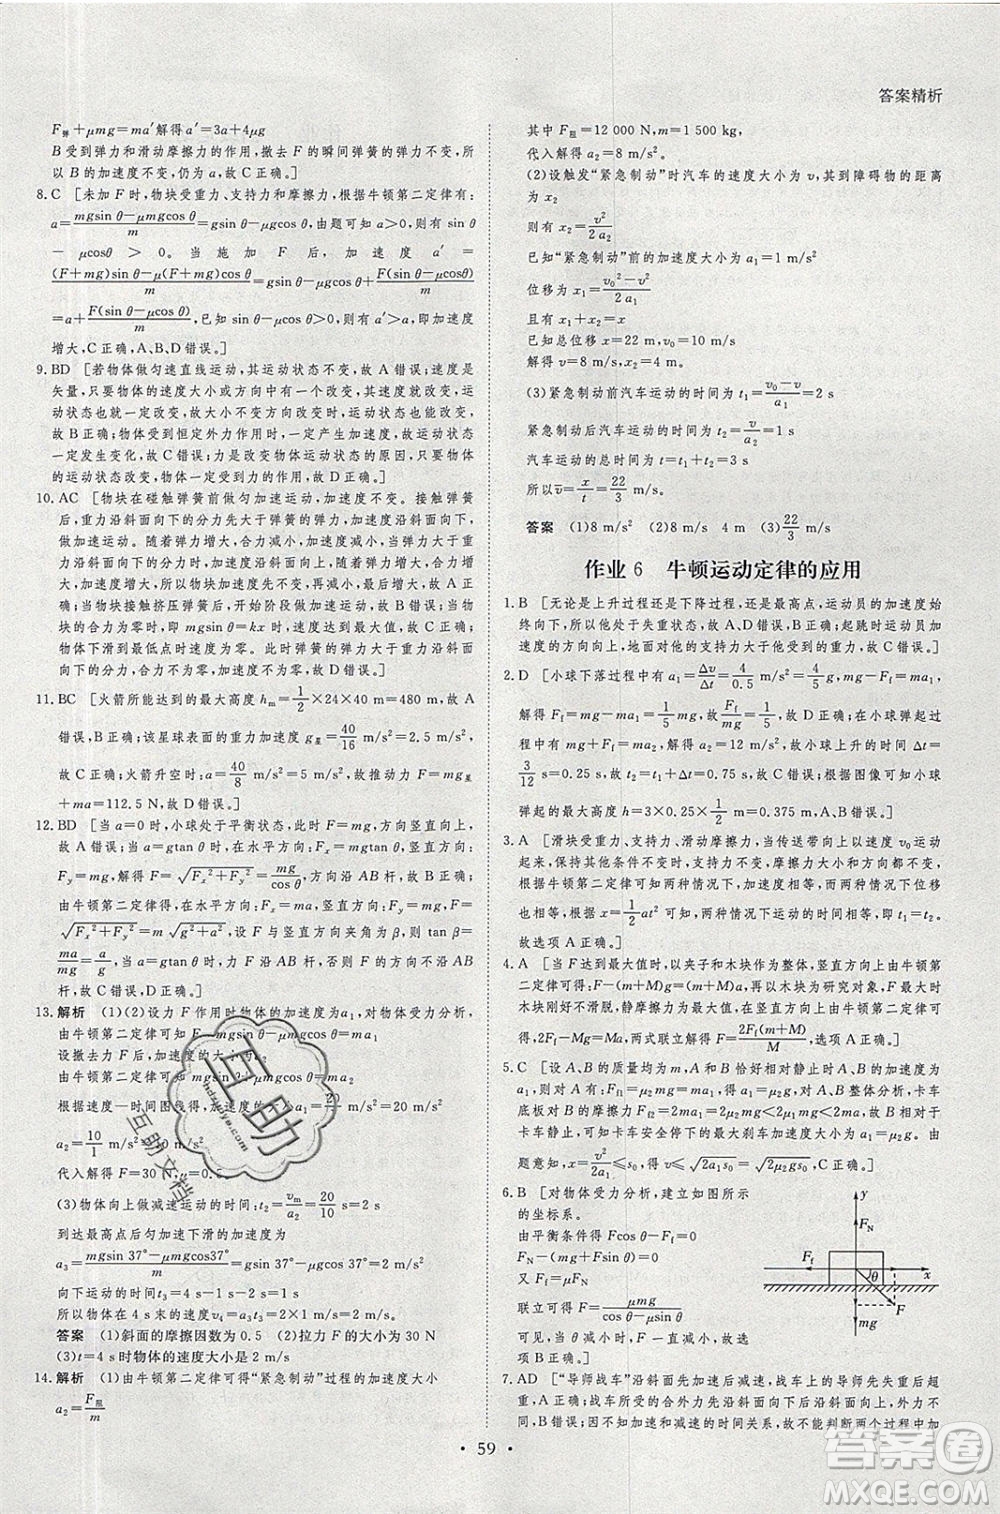 答案精析
F弹+μmg=ma′解得a′=3a+4μg
B受到弹力和滑动摩擦力的作用,撤去F的瞬间弹簧的弹力不变,所以B的加速度不变,仍为a,故C正确。]
8.C [未加F时,物块受重力、支持力和摩擦力,根据牛顿第二定律有:
a=(mgsin θ-μmgcos θ)/m=gsin θ-μgcos θ,由题可知a>0,即sin θ
-μcosθ>0。当施加F后,加速度a′=
(F+mg)sin θ-μ(F+mg)cos θ/m=gsin θ-μgcosθ+F(sin θ-μcosθ)/m
=a+F(sin θ-μcosθ)/m,已知sin θ-μcosθ>0,所以a′>a,即加速度
增大,C正确,A、B、D错误。]
9.BD [若物体做匀速直线运动,其运动状态不变,故A错误;速度是
矢量,只要物体的速度大小或方向中有一个改变,其速度就改变,
运动状态就改变,物体的运动状态改变,则其速度一定改变,故B、D正确;物体受到恒定外力作用时,一定产生加速度,其运动状态
一定发生变化,故C错误;力是改变物体运动状态的原因,只要力
不为零,运动状态就会改变,故D正确。]
10.AC [物块在碰触弹簧前做匀加速运动,加速度不变。接触弹簧
后,重力沿斜面向下的分力先大于弹簧的弹力,物块的合力沿斜
面向下,做加速运动,随着弹簧弹力的增大,合力减小,加速度减小;
块的速度最大时,mgsin θ=kx
面向下的分力,合力不为零,加速度不为零,故A、C正确。]
11.BC [火箭所能达到的最大高度hm=1/2×24×40 m=480 m,故A
错误,B正确;该星球表面的重力加速度g星=40/16 m/s²=2.5 m/s²,故
C正确;火箭升空时:a=40/8 m/s²=5 m/s²,故推动力F=mg星
+ma=112.5 N,故D错误。]
12.BD [当a=0时,小球处于平衡状态,F=mg,方向竖直向上,故A
错误,B正确;当a=gtan θ时,在水平方向:Fx=ma,竖直方向:
Fy=mg,则F=√(Fx²+Fy²)=mg/cos θ,方向沿AB杆,故C错误;无论a
取何值,都有:由牛顿第二定律得,在水平方向:Fx=ma,竖直方向:Fy=mg,F=
√(Fx²+Fy²)=m√(g²+a²),设F与竖直方向夹角为β,tan β=
ma/mg=a/g,当a=gtan θ时,β=θ,F沿AB杆,否则F不沿AB
杆,故D正确。]
13.解析 (1)(2)设力F作用时物体的加速度为a₁,对物体受力分析,
由牛顿第二定律可知F-mgsin θ-μmgcos θ=ma₁
设撤去力F后,加速度的大小为a₂
由牛顿第二定律可知mgsin θ+μmgcos θ=ma₂
根据速度—时间图线得,加速度的大小a₁=20/1
a₂=10/1 m/s²=10 m/s²
代入解得F=30 N,μ=0.5
(3)物体向上做减速运动的时间:t₂=vm/a₂=20/10 s=2 s
到达最高点后匀加速下滑的加速度为
a₃=(mgsin 37°-μmgcos37°)/m=2 m/s²
物体向下运动的时间t₃=t-t₁-t₂=4 s-1 s-2 s=1 s
所以物体在4 s末的速度v₄=a₃t₃=2×1 m/s=2 m/s
答案 (1)斜面的摩擦因数为0.5 (2)拉力F的大小为30 N
(3)t=4 s时物体的速度大小是2 m/s
14.解析 (1)由牛顿第二定律可得“紧急制动”过程的加速度大小
a₂=F阻/m
其中F阻=12 000 N,m=1 500 kg,
代入解得a₂=8 m/s²。
(2)设触发“紧急制动”时汽车的速度大小为v,其到障碍物的距离
为x₂
则有x₂=v²/2a₂
已知“紧急制动”前的加速度大小为a₁=1 m/s²
位移为x₁=(v₀²-v²)/2a₁
且有x=x₁+x₂
已知总位移x=22 m,v₀=10 m/s
解得v=8 m/s,x₂=4 m。
(3)紧急制动前汽车运动的时间t₁=(v₀-v)/a₁=2 s
紧急制动后汽车运动的时间t₂=v/a₂=1 s
汽车运动的总时间t=t₁+t₂=3 s
所以v̄=x/t=22/3 m/s。
答案 (1)8 m/s² (2)8 m/s 4 m (3)22/3 m/s
作业6 牛顿运动定律的应用
1.B [无论是上升过程还是下降过程,还是最高点,运动员的加速度始
终向下,所以处于失重状态,故A、C、D错误,B正确;起跳时运动员加
速度的方向向上,地面对他的支持力大于他受到的重力,故B正确。]
2.D [小球下落过程中有a₁=Δv/Δt=4/0.5 m/s²=8 m/s²,a₁=(mg-Ff)/m,
解得Ff=1/5mg=2 N,Ff/mg=1/5,故A、B错误;在小球弹起
过程中有mg+1/5mg=ma₂,解得a₂=12 m/s²,所以Δt=Δv′/a₂=
3/12 s=0.25 s,t=0.5 s+Δt=0.75 s,故C错误;根据图像可知小球
弹起的最大高度h=3×0.25×1/2 m=0.375 m,故D正确。]
3.A [滑块受重力、支持力、滑动摩擦力,当传送带向上以速度v₀运动
起来,不影响滑块所受的支持力,摩擦力大小和方向都不变,
根据牛顿第二定律可知两种情况下,加速度相等,而两种情况位移
也相等,根据x=1/2at²可知两种情况下运动的时间相等,即t₂=t₁,
故选项A正确。]
4.A [设加速度为a,对夹子和木块作为整体,竖直方向上由牛顿第
二定律得F-(m+M)g=(m+M)a,再以木块为研究对象,当夹子与
木块刚好不滑动时,静摩擦力为最大值,在竖直方向上由牛顿第二
定律得,2Ff-Mg=Ma,两式联立解得F=2Ff(m+M)/M,A正确。]
5.C [设A、B的质量均为m,若A和B恰好对静止时,以A为研
究对象,有:Ff1=μ₂mg=ma₂,a₂=μ₂g,对AB整体分析,卡车
底板对B的摩擦力Ff2=2ma₁=2μ₂mg<2μ₁mg,所以当A、B与
卡车静止时,可知卡车安全停车的最大刹车加速度a₁=μ₂g,根据
题意知,s₀=v₀²/2a₁,所以v₀=√(2a₁s₀)=√(2μ₂gs₀),故C正确。]
6.B [对物体受力分析,建立如图所示
的坐标系。
由平衡条件得Fcosθ-Ff=0
FN-mg-Fsinθ=0
又Ff=μFN
联立可得F=μmg/(cosθ-μsinθ)
可见,当θ减小时,F一直减小,故选项
B正确。]
y
FN
Ff
θ
x
F
mg
7.AD [“导师战车”沿斜面先加速后减速,战车上的导师先失重后超
重,A正确,B错误;不知道加速和减速的时间关系,故不能判断两个过程中加
59
互助
hdzuoye.com
互助文档
答案圈
MXQE.COM